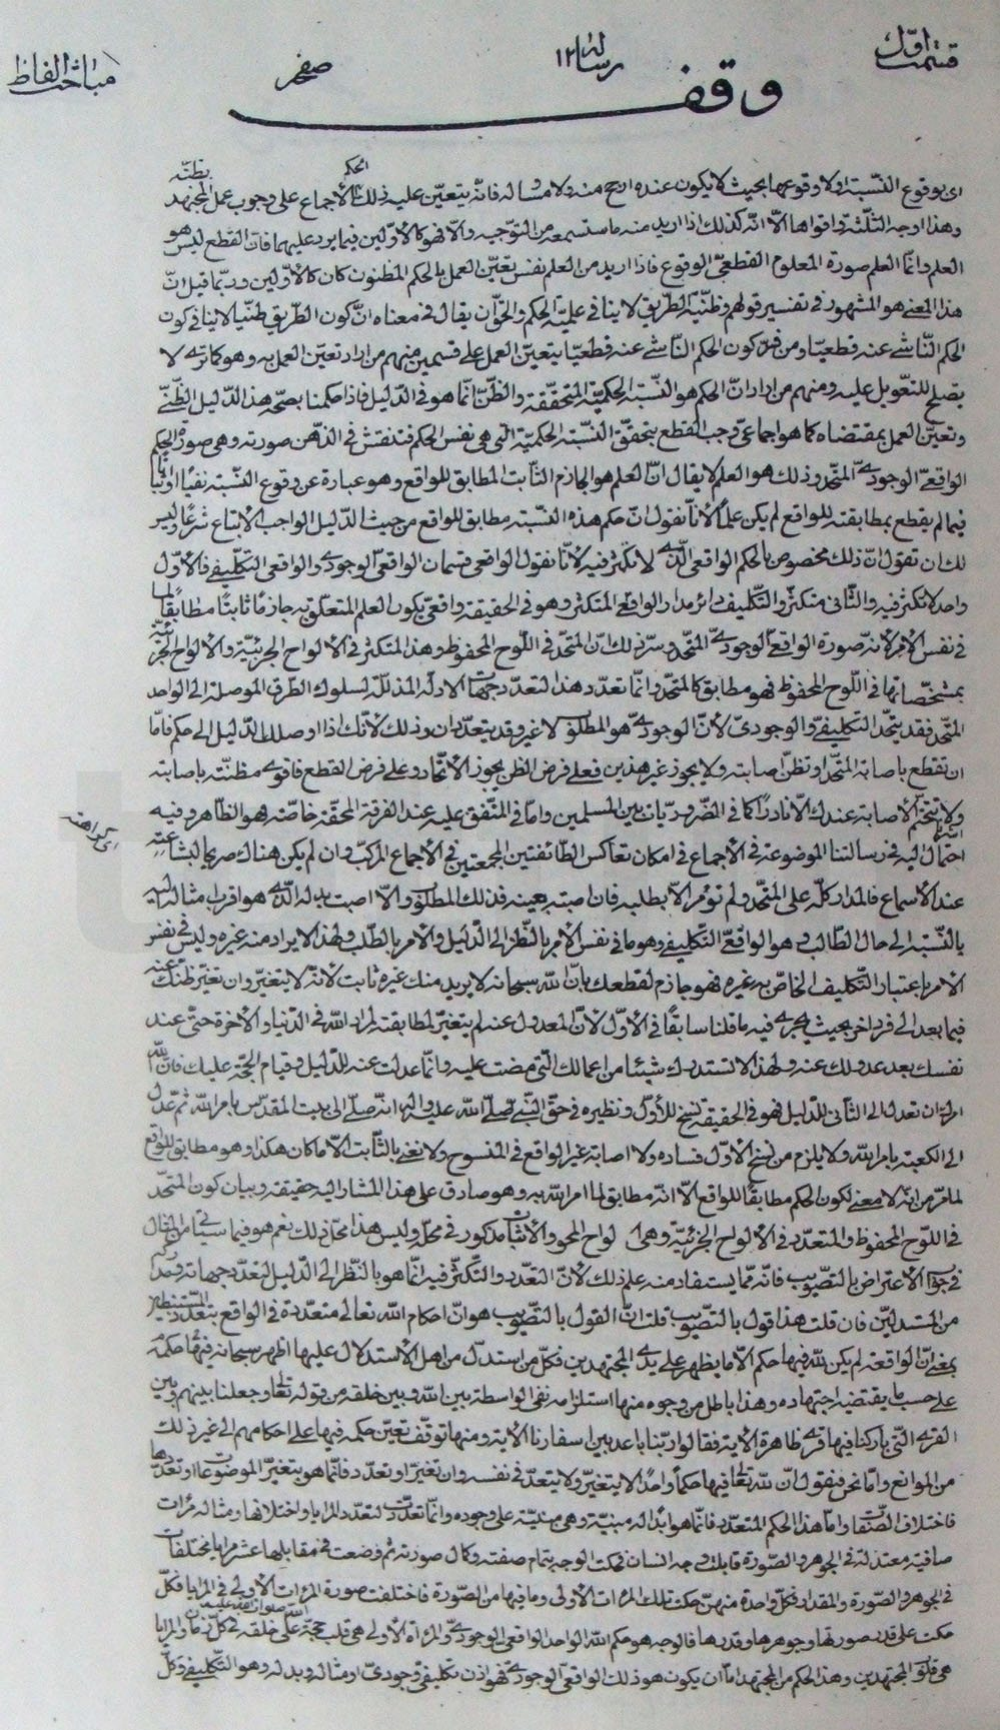 قسمت اول رسالهٔ ١٢ صفحه مباحث الفاظ
وقف
الحكم بظنّه
اى بوقوع النّسبة او لا وقوعها بحيث لا يكون عنده ارجح منه ولا مساوٍ له فانّه يتعيّن عليه ذلك للاجماع على وجوب عمل المجتهد
وهذا اوجه الثلثة واقواها الّا انّه كذلك اذا اريد منه ما ستسمعه من التّوجيه والّا فهو كالاوّلين فيما يرد عليهما فانّ القطع ليس هو
العلم وانّما العلم صورة المعلوم القطعىّ الوقوع فاذا اريد من العلم نفس تعيّن العمل بالحكم المظنون كان كالاوّلين وربّما قيل انّ
هذا المعنى هو المشهور فى تفسير قولهم وظنّيّة الطّريق لا ينافى علميّة الحكم والحقّ ان يقال فى معناه انّ كون الطّريق ظنّيّا لا ينافى كون
الحكم النّاشى عنه قطعيّا ومن فسّر كون الحكم النّاشى عنه قطعيّا بتعيّن العمل على قسمين منهم من اراد تعيّن العمل به وهو كما ترى لا
يصلح للتّعويل عليه ومنهم من اراد انّ الحكم هو النّسبة الحكميّة المتحقّقة والظّنّ انّما هو فى الدّليل فاذا حكمنا بصحّة هذا الدّليل الظّنّى
وتعيّن العمل بمقتضاه كما هو اجماعىّ وجب القطع بتحقّق النّسبة الحكميّة الّتى هى نفس الحكم فتنقش فى الذّهن صورته وهى صورة الحكم
الواقعىّ الوجودىّ المتّحد وذلك هو العلم لا يقال انّ العلم هو الجازم الثّابت المطابق للواقع وهو عبارة عن وقوع النّسبة نفيًا او اثباتًا
فما لم يقطع بمطابقته للواقع لم يكن علمًا لانّا نقول انّ حكم هذه النّسبة مطابق للواقع من حيث الدّليل الواجب الاتباع شرعًا وليس
لك ان تقول انّ ذلك مخصوص بالحكم الواقعى الّذى لا تكثّر فيه لانّا نقول الواقعى قسمان الواقعىّ الوجودى والواقعى التكليفى فالاوّل
واحد لا تكثّر فيه والثّانى متكثّر والتّكليف دائر مدار الواقعىّ المتكثّر وهو فى الحقيقة واقعىّ يكون العلم المتعلّق به جازمًا ثابتًا مطابقًا لما
فى نفس الامر لانّه صورة الواقعىّ الوجودىّ المتّحد وسرّ ذلك ان المتّحد فى اللّوح المحفوظ وهذا المتكثر فى الالواح الجزئيّة والالواح الجزئيّة
بمشخّصاتها فى اللّوح المحفوظ فهو مطابق كالمتّحد وانّما تعدّد هذا لتعدّد جهات الادلّة المذلّلة لسلوك الطّرق الموصلة الى الواحد
المتّحد فقد يتّحد التّكليفىّ والوجودىّ لانّ الوجودىّ هو المطلوب لا غير وقد يتعدّدان وذلك لانّك اذا اوصلك الدّليل الى حكم فامّا
ان تقطع باصابة المتّحد او تظنّ اصابته ولا يجوز غير هذين فعلى فرض الظن يجوز الاتّحاد وعلى فرض القطع فاقوى مظنّته باصابته
ولا تتحتّم الاصابة عندك الّا نادرًا كما فى الضّروريات بين المسلمين وامّا فى المتّفق عليه عند الفرقة المحقّة خاصّة فهو الظّاهر وفيه
احتمال اليه فى رسالتنا الموضوعة فى الاجماع فى امكان تعاكس الطّائفتين المجمعتين فى الاجماع المركّب وان لم يكن هناك صريحا لبشاعته
عند الاسماع فالمدار كلّه على المتّحد ولم تؤمر الّا بطلبه فان اصبته بعينه فذلك المطلوب والّا اصبت بدله الّذى هو اقرب امثاله اليه
بالنّسبة الى حال الطّالب وهو الواقعىّ التّكليفى وهو ما فى نفس الامر بالنّظر الى الدّليل والامر بالطّلب ولهذا لا يراد منه غيره وليس فى نفس
الامر باعتبار التّكليف الخاصّ به غيره فهو جازم لقطعك بانّ اللّه سبحانه لا يريد منك غيره ثابت لانّه لا يتغيّر وان تغيّر ظنّك عنه
فيما بعد الى فرد اخر بحيث يجرى فيه ما قلنا سابقًا فى الاوّل لانّ المعدول عنه لم يتغيّر لمطابقته لمراد اللّه فى الدّنيا والاخرة حتّى عند
نفسك بعد عدولك عنه ولهذا لا تستدرك شيئا من اعمالك الّتى مضت عليه وانّما عدلت عنه للدّليل وقيام الحجّة عليك فانّ اللّه
امرك ان تعدل الى الثّانى للدّليل فهو فى الحقيقة نسخ للاوّل ونظيره فى حقّ النّبىّ صلّى اللّه عليه واله انّه صلّى الى بيت المقدّس بامر اللّه ثم عدل
الى الكعبة بامر اللّه ولا يلزم من نسخ الاوّل فساده ولا اصابة غير الواقع فى المنسوخ ولا نعنى بالثّابت الّا ما كان هكذا وهو مطابق للواقع
لما مرّ من انّه لا معنى لكون الحكم مطابقًا للواقع الّا انّه مطابق لما امر اللّه به وهو صادق على هذا المشار اليه حقيقة وبيان كون المتّحد
فى اللّوح المحفوظ والمتعدّد فى الالواح الجزئيّة وهى الواح المحو والاثبات مذكور فى محلّه وليس هذا محلّ ذلك نعم هو فيما سياتى من المقال
فى جواب الاعتراض بالتّصويب فانّه ممّا يستفاد منه علم ذلك لانّ التّعدّد والتّكثّر فيه انّما هو بالنّظر الى الدّليل لتعدّد جهاته ومدركه
من المستدلّين فان قلت هذا قول بالتّصويب قلت انّ القول بالتّصويب هو انّ احكام اللّه تعالى متعدّدة فى الواقع بتعدّد المستنبطين
بمعنى انّ الواقعة لم يكن للّه فيها حكم الّا ما يظهر على يدى المجتهدين فكلّ من استدلّ من اهل الاستدلال عليها اظهر سبحانه فيها حكمه
على حسب ما يقتضيه اجتهاده وهذا باطل من وجوه منها استلزامه نفى الواسطة بين اللّه وبين خلقه من قوله تعالى وجعلنا بينهم وبين
القرى الّتى باركنا فيها قرى ظاهرة الاية فقالوا ربّنا باعد بين اسفارنا الاية ومنها توقّف تعيّن حكمه فيها على احكامهم الى غير ذلك
من الموانع وامّا نحن فنقول انّ للّه تعالى فيها حكمًا واحدًا لا يتغيّر ولا يتعدّد فى نفسه وان تغيّر او تعدّد فانّما هو بتغيّر الموضوعات او تعدّدها
فاختلاف الصّفات وامّا هذا الحكم المتعدّد فانّما هو ابداله مبنيّة وهى مبنيّة على وجوده وانّما تعدّدت لتعدّد المرايا واختلافها ومثاله مرات
صافية معتدلة فى الجوهر والصّورة قابلت وجه انسان فحكت الوجه بتمام صفته وكمال صورته ثم وضعت فى مقابلها عشر مرايا مختلفات
فى الجوهر والصّورة والمقدار فكلّ واحدة منهنّ حكت تلك المرات الاولى وما فيها من الصّورة فاختلفت صورة المرات الاولى فى المرايا فكلّ
حكت على قدر صورتها وجوهرها وقدرها فالوجه هو حكم اللّه الواحد الواقعى الوجودىّ والمراة الاولى هى قلب حجّة اللّه صلوات اللّه عليه على خلقه فى كلّ زمان والمرايا
هى قلوب المجتهدين وهذا الحكم من المجتهد امّا ان يكون هو ذلك الواقعىّ الوجودىّ فهو اذن تكليفىّ وجودىّ او مثاله وبدله وهو التّكليفى وكلّ